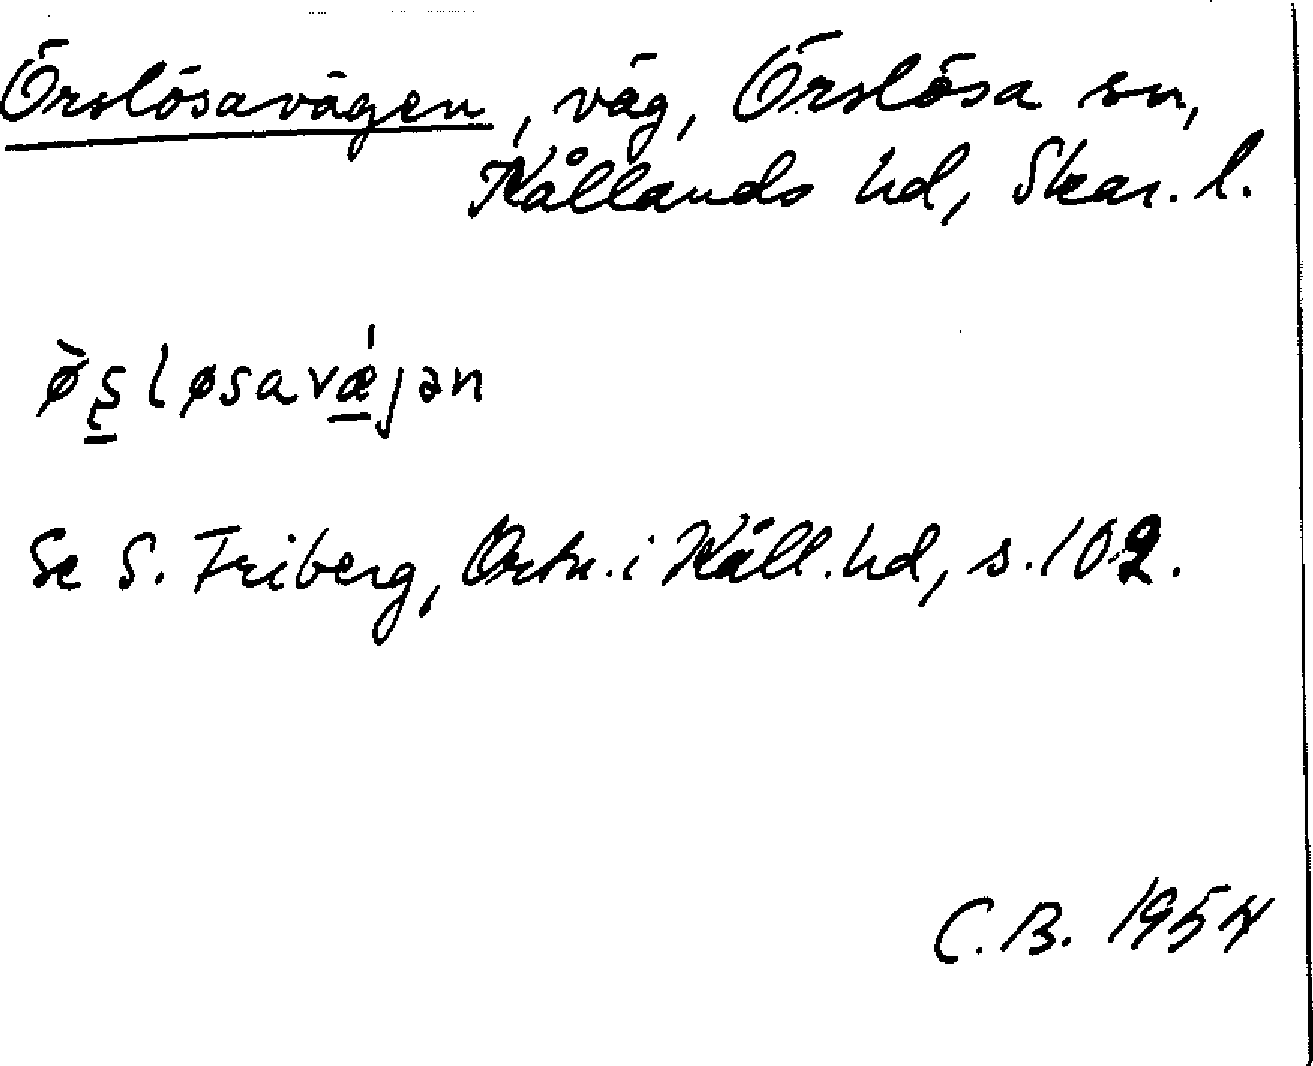 Örslösavägen, väg, Örslösa sn,
Kållands hd, Skar. l.
ø̀s̠løsavǽ̠jən
Se S. Friberg, Ortn. i Kåll. hd, s. 102.
C. B. 1954